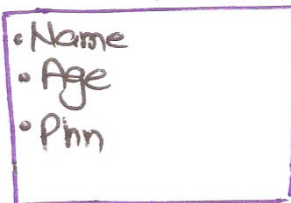 • Name
• Age
• Phn